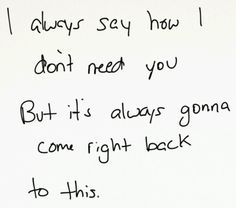 I always say how I
don't need you
But it's always gonna
come right back
to this.